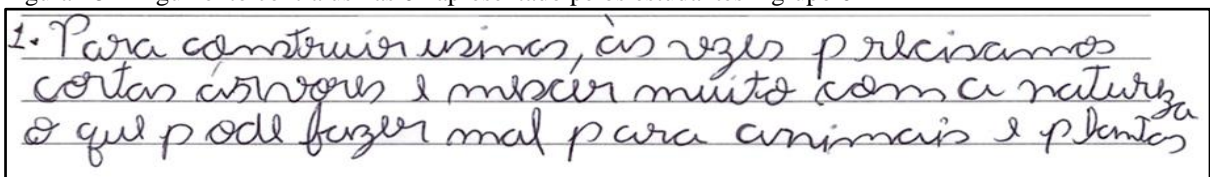 1. Para construir usinas, às vezes precisamos
cortas árvores e mexer muito com a natureza
o que pode fazer mal para animais e plantas